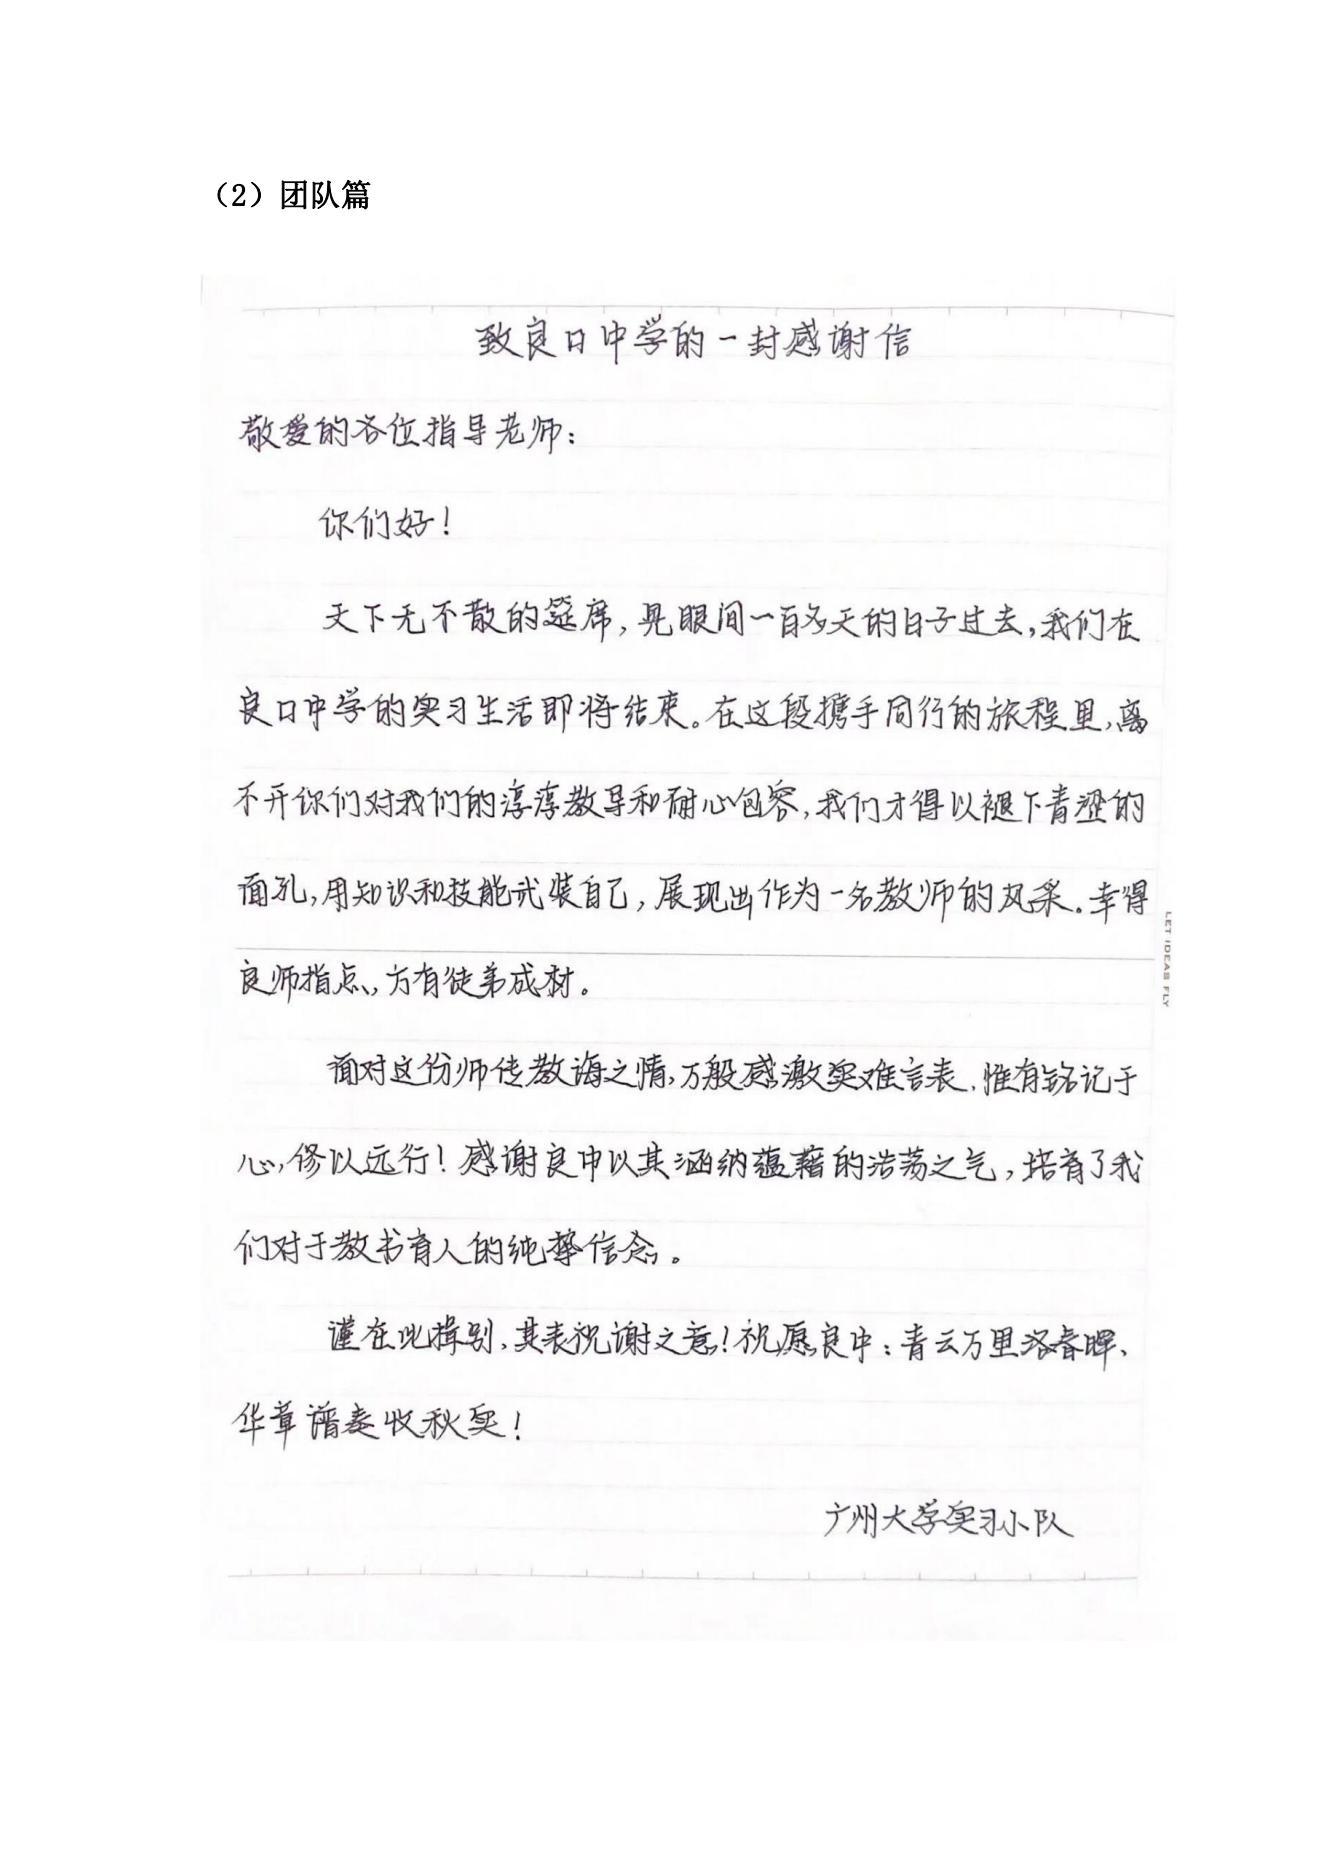 （2）团队篇
致良口中学的一封感谢信
敬爱的各位指导老师：
你们好！
天下无不散的筵席，晃眼间一百多天的日子过去，我们在
良口中学的实习生活即将结束。在这段携手同行的旅程里，离
不开你们对我们的淳淳教导和耐心包容，我们才得以褪下青涩的
面孔，用知识和技能武装自己，展现出作为一名教师的风采。幸得
良师指点，方有徒弟成材。
面对这份师传教诲之情，万般感激实难言表，惟有铭记于
心，修以远行！感谢良中以其涵纳蕴藉的浩荡之气，培育了我
们对于教书育人的纯挚信念。
谨在此揖别，其表祝谢之意！祝愿良中：青云万里洛春晖、
华章谱奏收秋实！
广州大学实习小队
LET IDEAS FLY